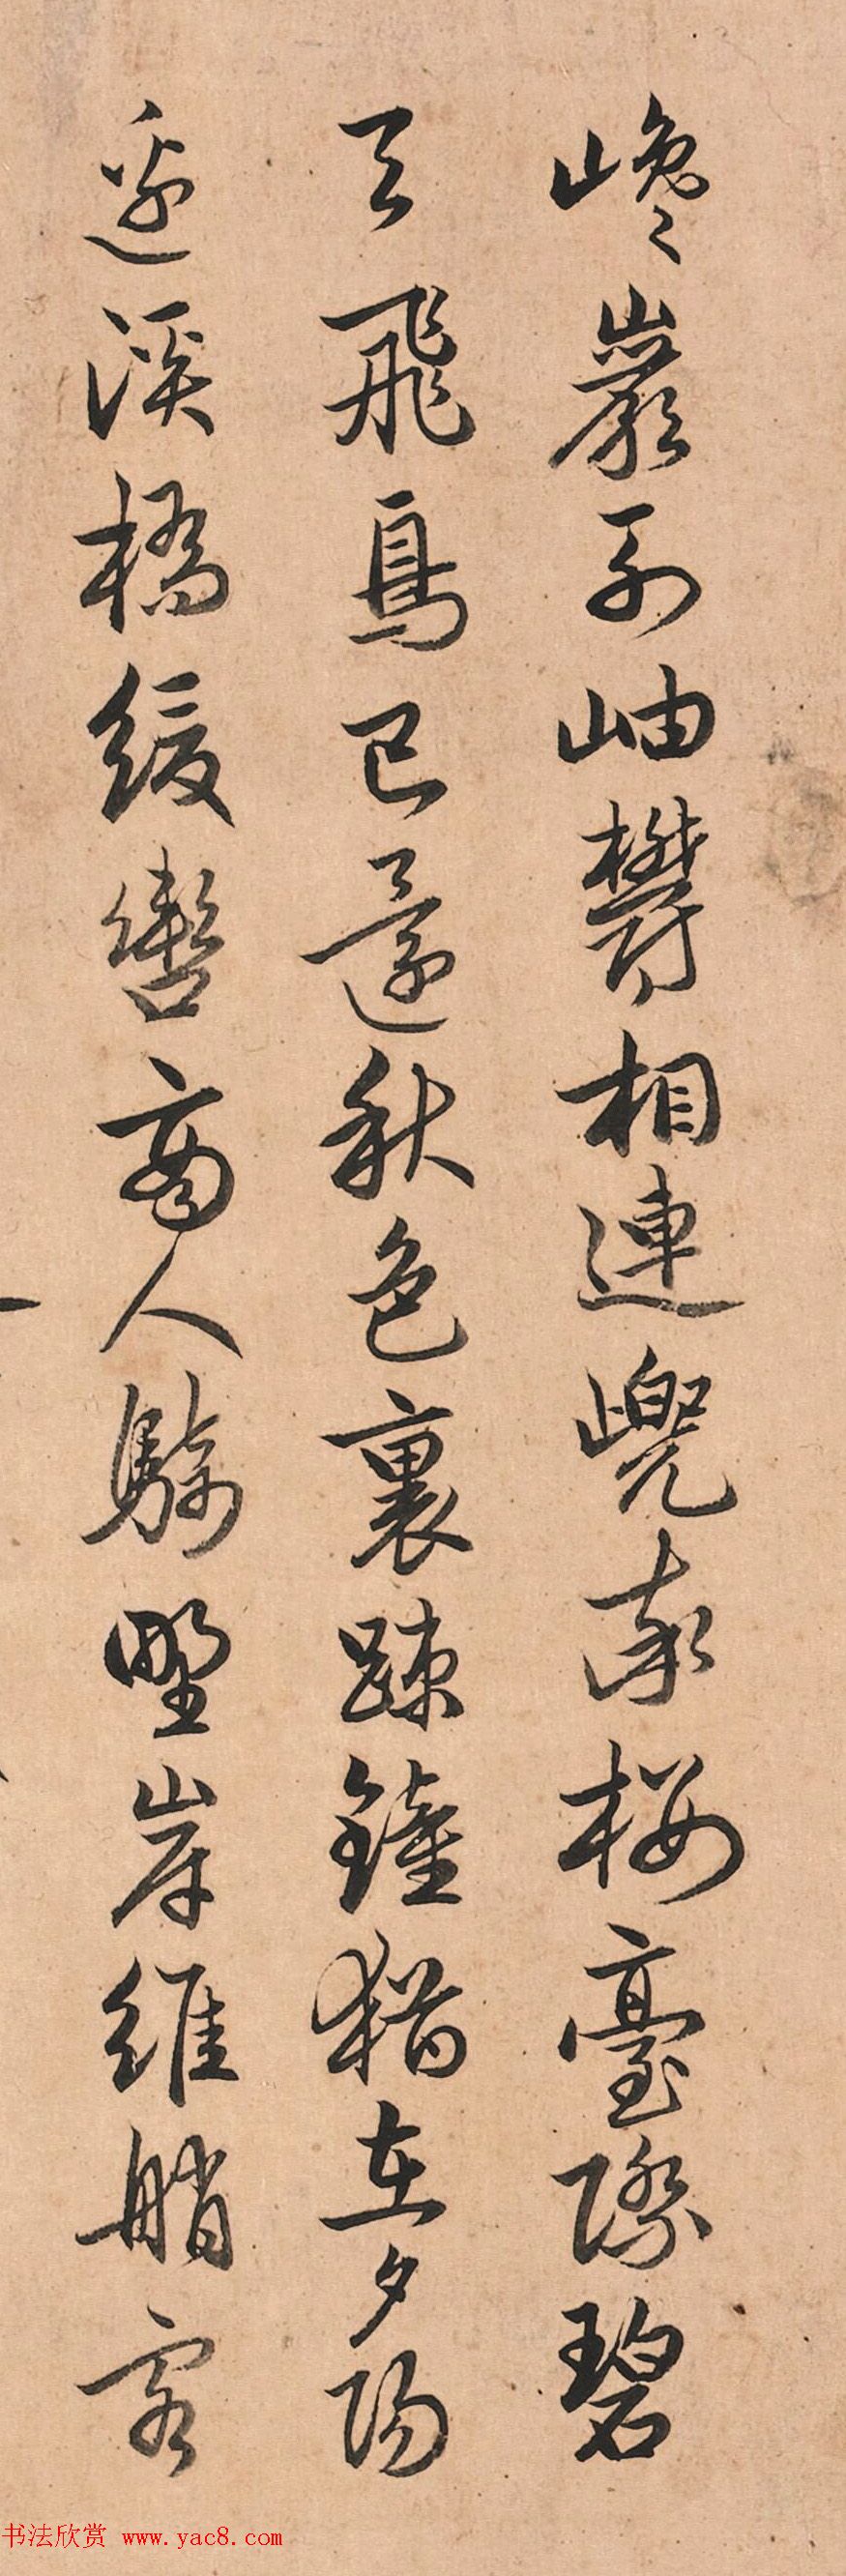 巉巖列岫鬱相連巙率樓臺際碧
天飛鳥已還秋色裏疎鐘猶在夕陽
邊溪橋緩轡尋人騎野岸維艄客
书法欣赏 www.yac8.com